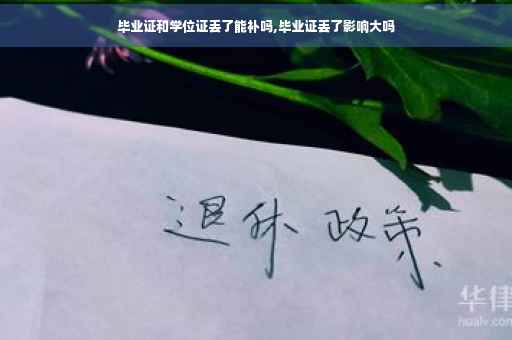 毕业证和学位证丢了能补吗,毕业证丢了影响大吗
退休 政策
华律
hualv.com